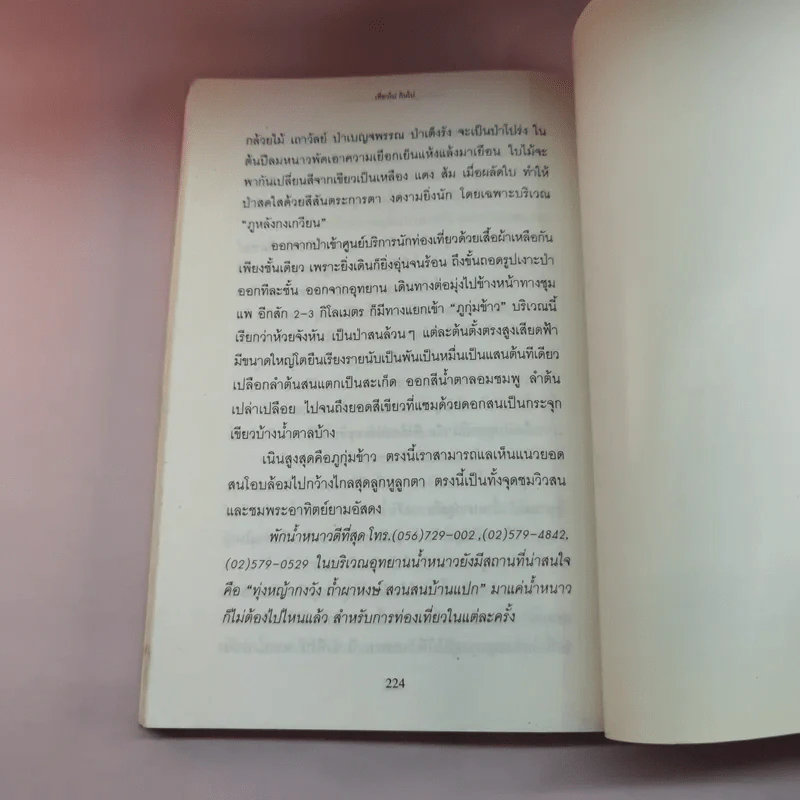 เที่ยวไป กินไป
กล้วยไม้ เถาวัลย์ ป่าเบญจพรรณ ป่าเต็งรัง จะเป็นป่าโปร่ง ใน
ต้นปีลมหนาวพัดเอาความเยือกเย็นแห้งแล้งมาเยือน ใบไม้จะ
พากันเปลี่ยนสีจากเขียวเป็นเหลือง แดง ส้ม เมื่อผลัดใบ ทำให้
ป่าสดใสด้วยสีสันตระการตา งดงามยิ่งนัก โดยเฉพาะบริเวณ
“ภูหลังกงเกวียน”
ออกจากป่าเข้าศูนย์บริการนักท่องเที่ยวด้วยเสื้อผ้าเหลือกัน
เพียงชั้นเดียว เพราะยิ่งเดินก็ยิ่งอุ่นจนร้อน ถึงขั้นถอดรูปเงาะป่า
ออกทีละชั้น ออกจากอุทยาน เดินทางต่อมุ่งไปข้างหน้าทางชุม
แพ อีกสัก 2-3 กิโลเมตร ก็มีทางแยกเข้า “ภูกุ่มข้าว” บริเวณนี้
เรียกว่าห้วยจังหัน เป็นป่าสนล้วนๆ แต่ละต้นตั้งตรงสูงเสียดฟ้า
มีขนาดใหญ่โตยืนเรียงรายนับเป็นพันเป็นหมื่นเป็นแสนต้นทีเดียว
เปลือกลำต้นสนแตกเป็นสะเก็ด ออกสีน้ำตาลอมชมพู ลำต้น
เปล่าเปลือย ไปจนถึงยอดสีเขียวที่แซมด้วยดอกสนเป็นกระจุก
เขียวบ้างน้ำตาลบ้าง
เนินสูงสุดคือภูกุ่มข้าว ตรงนี้เราสามารถแลเห็นแนวยอด
สนโอบล้อมไปกว้างไกลสุดลูกหูลูกตา ตรงนี้เป็นทั้งจุดชมวิวสน
และชมพระอาทิตย์ยามอัสดง
พักน้ำหนาวดีที่สุด โทร.(056)729-002,(02)579-4842,
(02)579-0529 ในบริเวณอุทยานน้ำหนาวยังมีสถานที่น่าสนใจ
คือ “ทุ่งหญ้ากงวัง ถ้ำผาหงษ์ สวนสนบ้านแปก” มาแค่น้ำหนาว
ก็ไม่ต้องไปไหนแล้ว สำหรับการท่องเที่ยวในแต่ละครั้ง
224